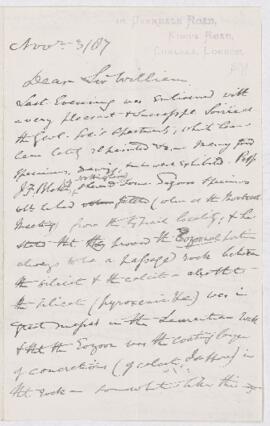 KING'S ROAD,
CHELSEA, LONDON.
Nov 3/87
Dear Sir William
Last Evening was enlivened with
a very pleasant & Soirée at
the Geol. Soc's Apartments, which have
been lately repainted &c. Many good
Specimens, were exhibited. Prof
J F Blake, showed some Eozoon Specimens
wh he had (when at the Montreal
Meeting) from the typical locality, & he
states that they proved the Eozoonal part
always to be a passage rock between
the silicate & the calcite — also that
the silicate (pyroxenic like) was in
great masses in the Laurentian rock
& that the Eozoon was the coating layer
of concretions (of calcite, I suppose) in
the rock — somewhat like this